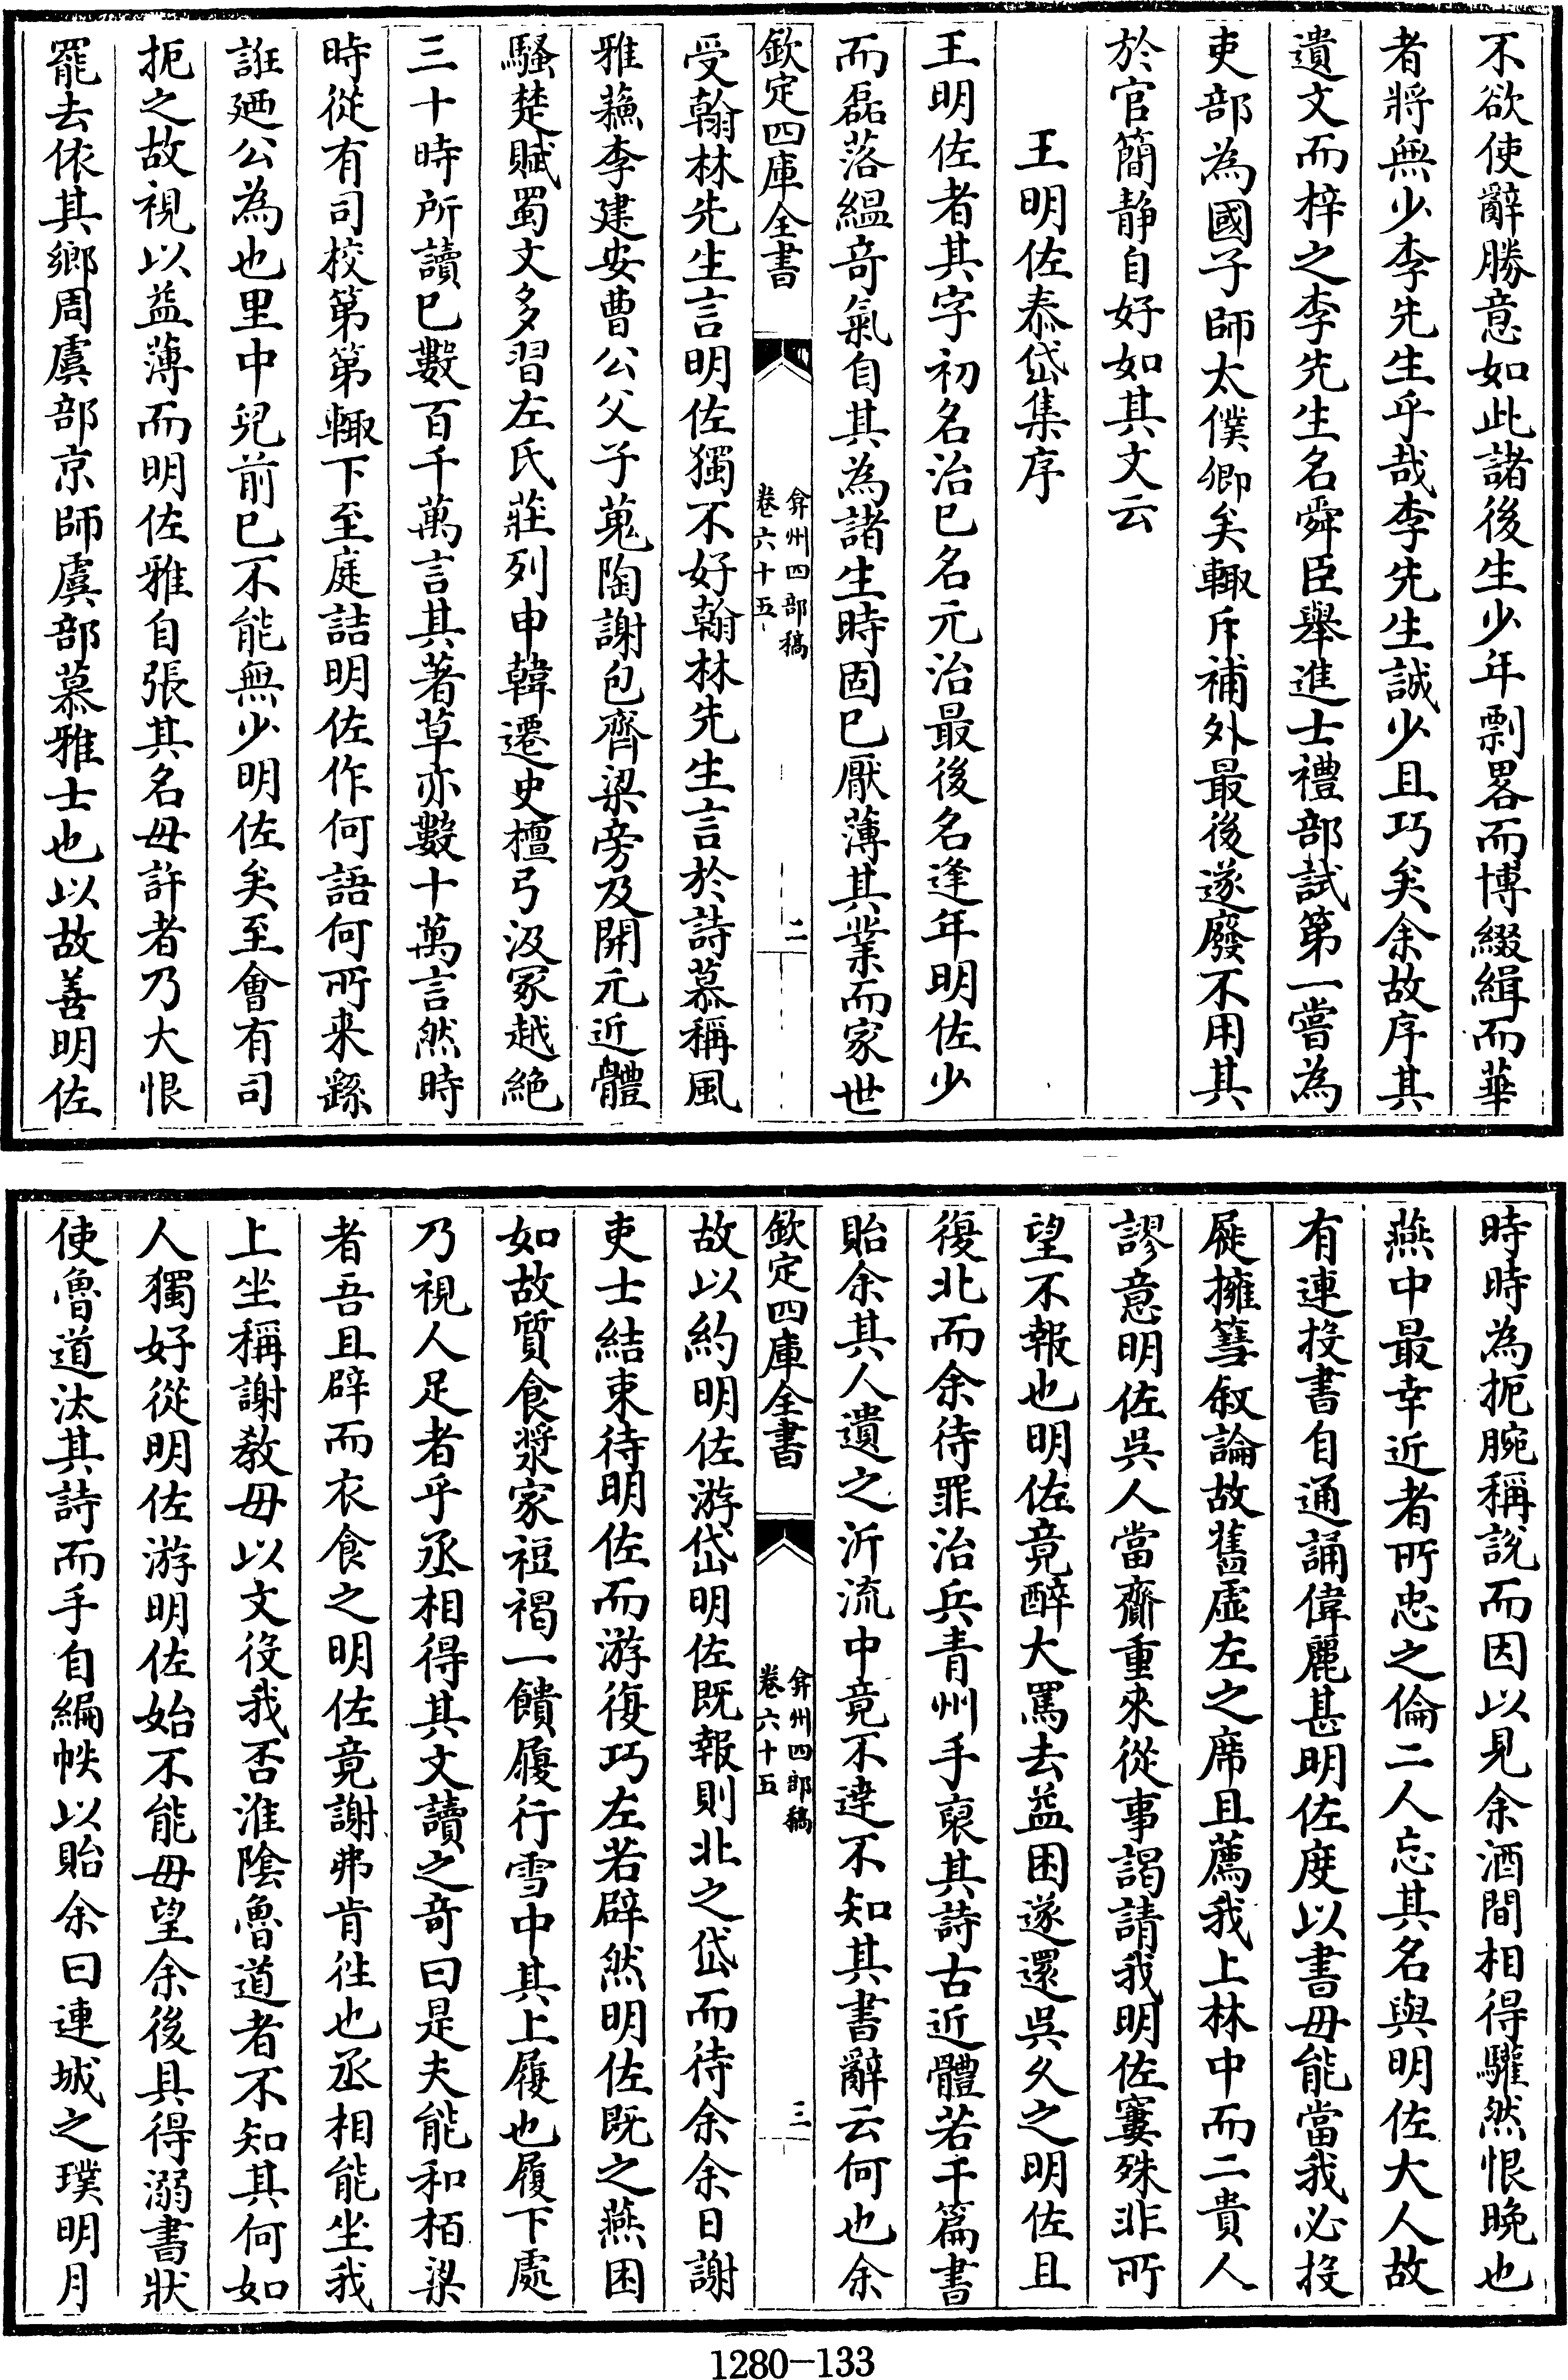 不欲使辭勝意如此諸後生少年剽畧而博綴緝而華
者將無少李先生乎哉李先生誠少且巧矣余故序其
遺文而梓之李先生名舜臣舉進士禮部試第一嘗為
吏部為國子師太僕卿矣輙斥補外最後遂廢不用其
於官簡静自好如其文云
王明佐泰岱集序
王明佐者其字初名治已名元治最後名逢年明佐少
而磊落緼竒氣自其為諸生時固已厭薄其業而家世
欽定四庫全書
弇州四部稿
卷六十五
二
受翰林先生言明佐獨不好翰林先生言於詩慕稱風
雅蘓李建安曹公父子蒐陶謝包齊梁旁及開元近體
騷楚賦蜀文多習左氏莊列申韓遷史檀弓汲冢越絶
三十時所讀已數百千萬言其著草亦數十萬言然時
時從有司校第第輙下至庭詰明佐作何語何所来繇
誑廼公為也里中兒前已不能無少明佐矣至會有司
扼之故視以益薄而明佐雅自張其名毋許者乃大恨
罷去依其鄉周虞部京師虞部慕雅士也以故善明佐
時時為扼腕稱説而因以見余酒間相得驩然恨晚也
燕中最幸近者所忠之倫二人忘其名與明佐大人故
有連投書自通誦偉麗甚明佐度以書毋能當我必投
屣擁篲叙論故舊虚左之席且薦我上林中而二貴人
謬意明佐吳人當齎重來從事謁請我明佐窶殊非所
望不報也明佐竟醉大罵去益困遂還吳久之明佐且
復北而余待罪治兵青州手裒其詩古近體若干篇書
貽余其人遺之沂流中竟不逹不知其書辭云何也余
欽定四庫全書
弇州四部稿
卷六十五
三
故以約明佐游岱明佐既報則北之岱而待余余日謝
吏士結束待明佐而游復巧左若辟然明佐既之燕困
如故質食漿家裋褐一饋履行雪中其上履也履下處
乃視人足者乎丞相得其文讀之竒曰是夫能和栢梁
者吾且辟而衣食之明佐竟謝弗肯徃也丞相能坐我
上坐稱謝敎毋以文役我否淮隂魯道者不知其何如
人獨好從明佐游明佐始不能毋望余後具得溺書狀
使魯道汰其詩而手自編帙以貽余曰連城之璞明月
1280—133